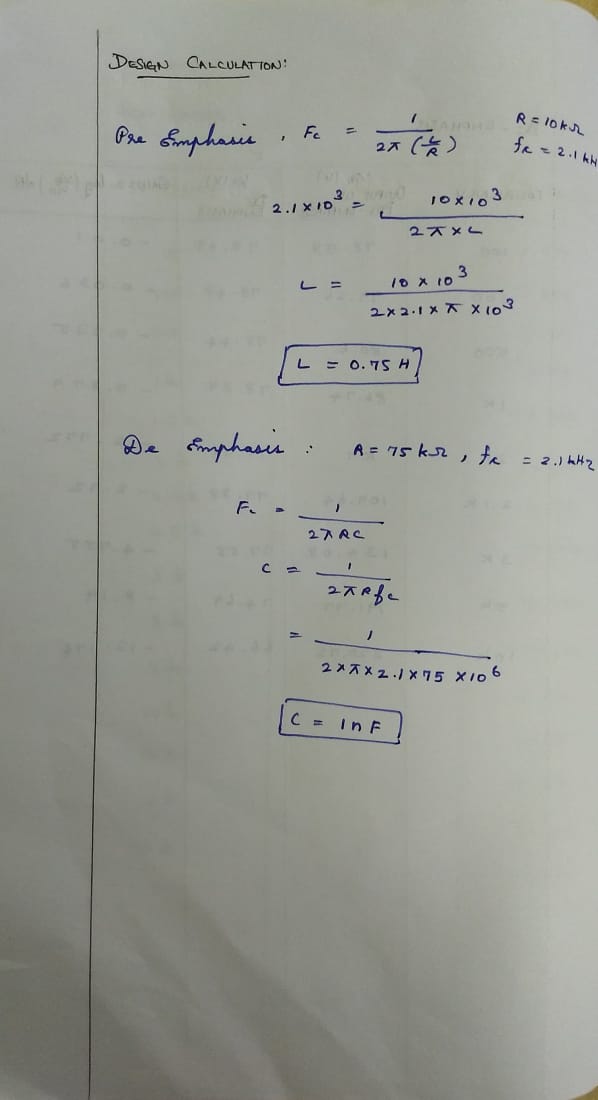 DESIGN CALCULATION:
Pre Emphasis, Fc = 1 / 2π (L/R)
R = 10kΩ
fc = 2.1 kH
2.1 × 10³ = 10 × 10³ / 2π × L
L = 10 × 10³ / 2×2.1×π×10³
L = 0.75 H
De Emphasis : R = 75 kΩ, fc = 2.1 kHz
Fc = 1 / 2πRC
C = 1 / 2πRfc
= 1 / 2×π×2.1×75×10⁶
C = 1nF